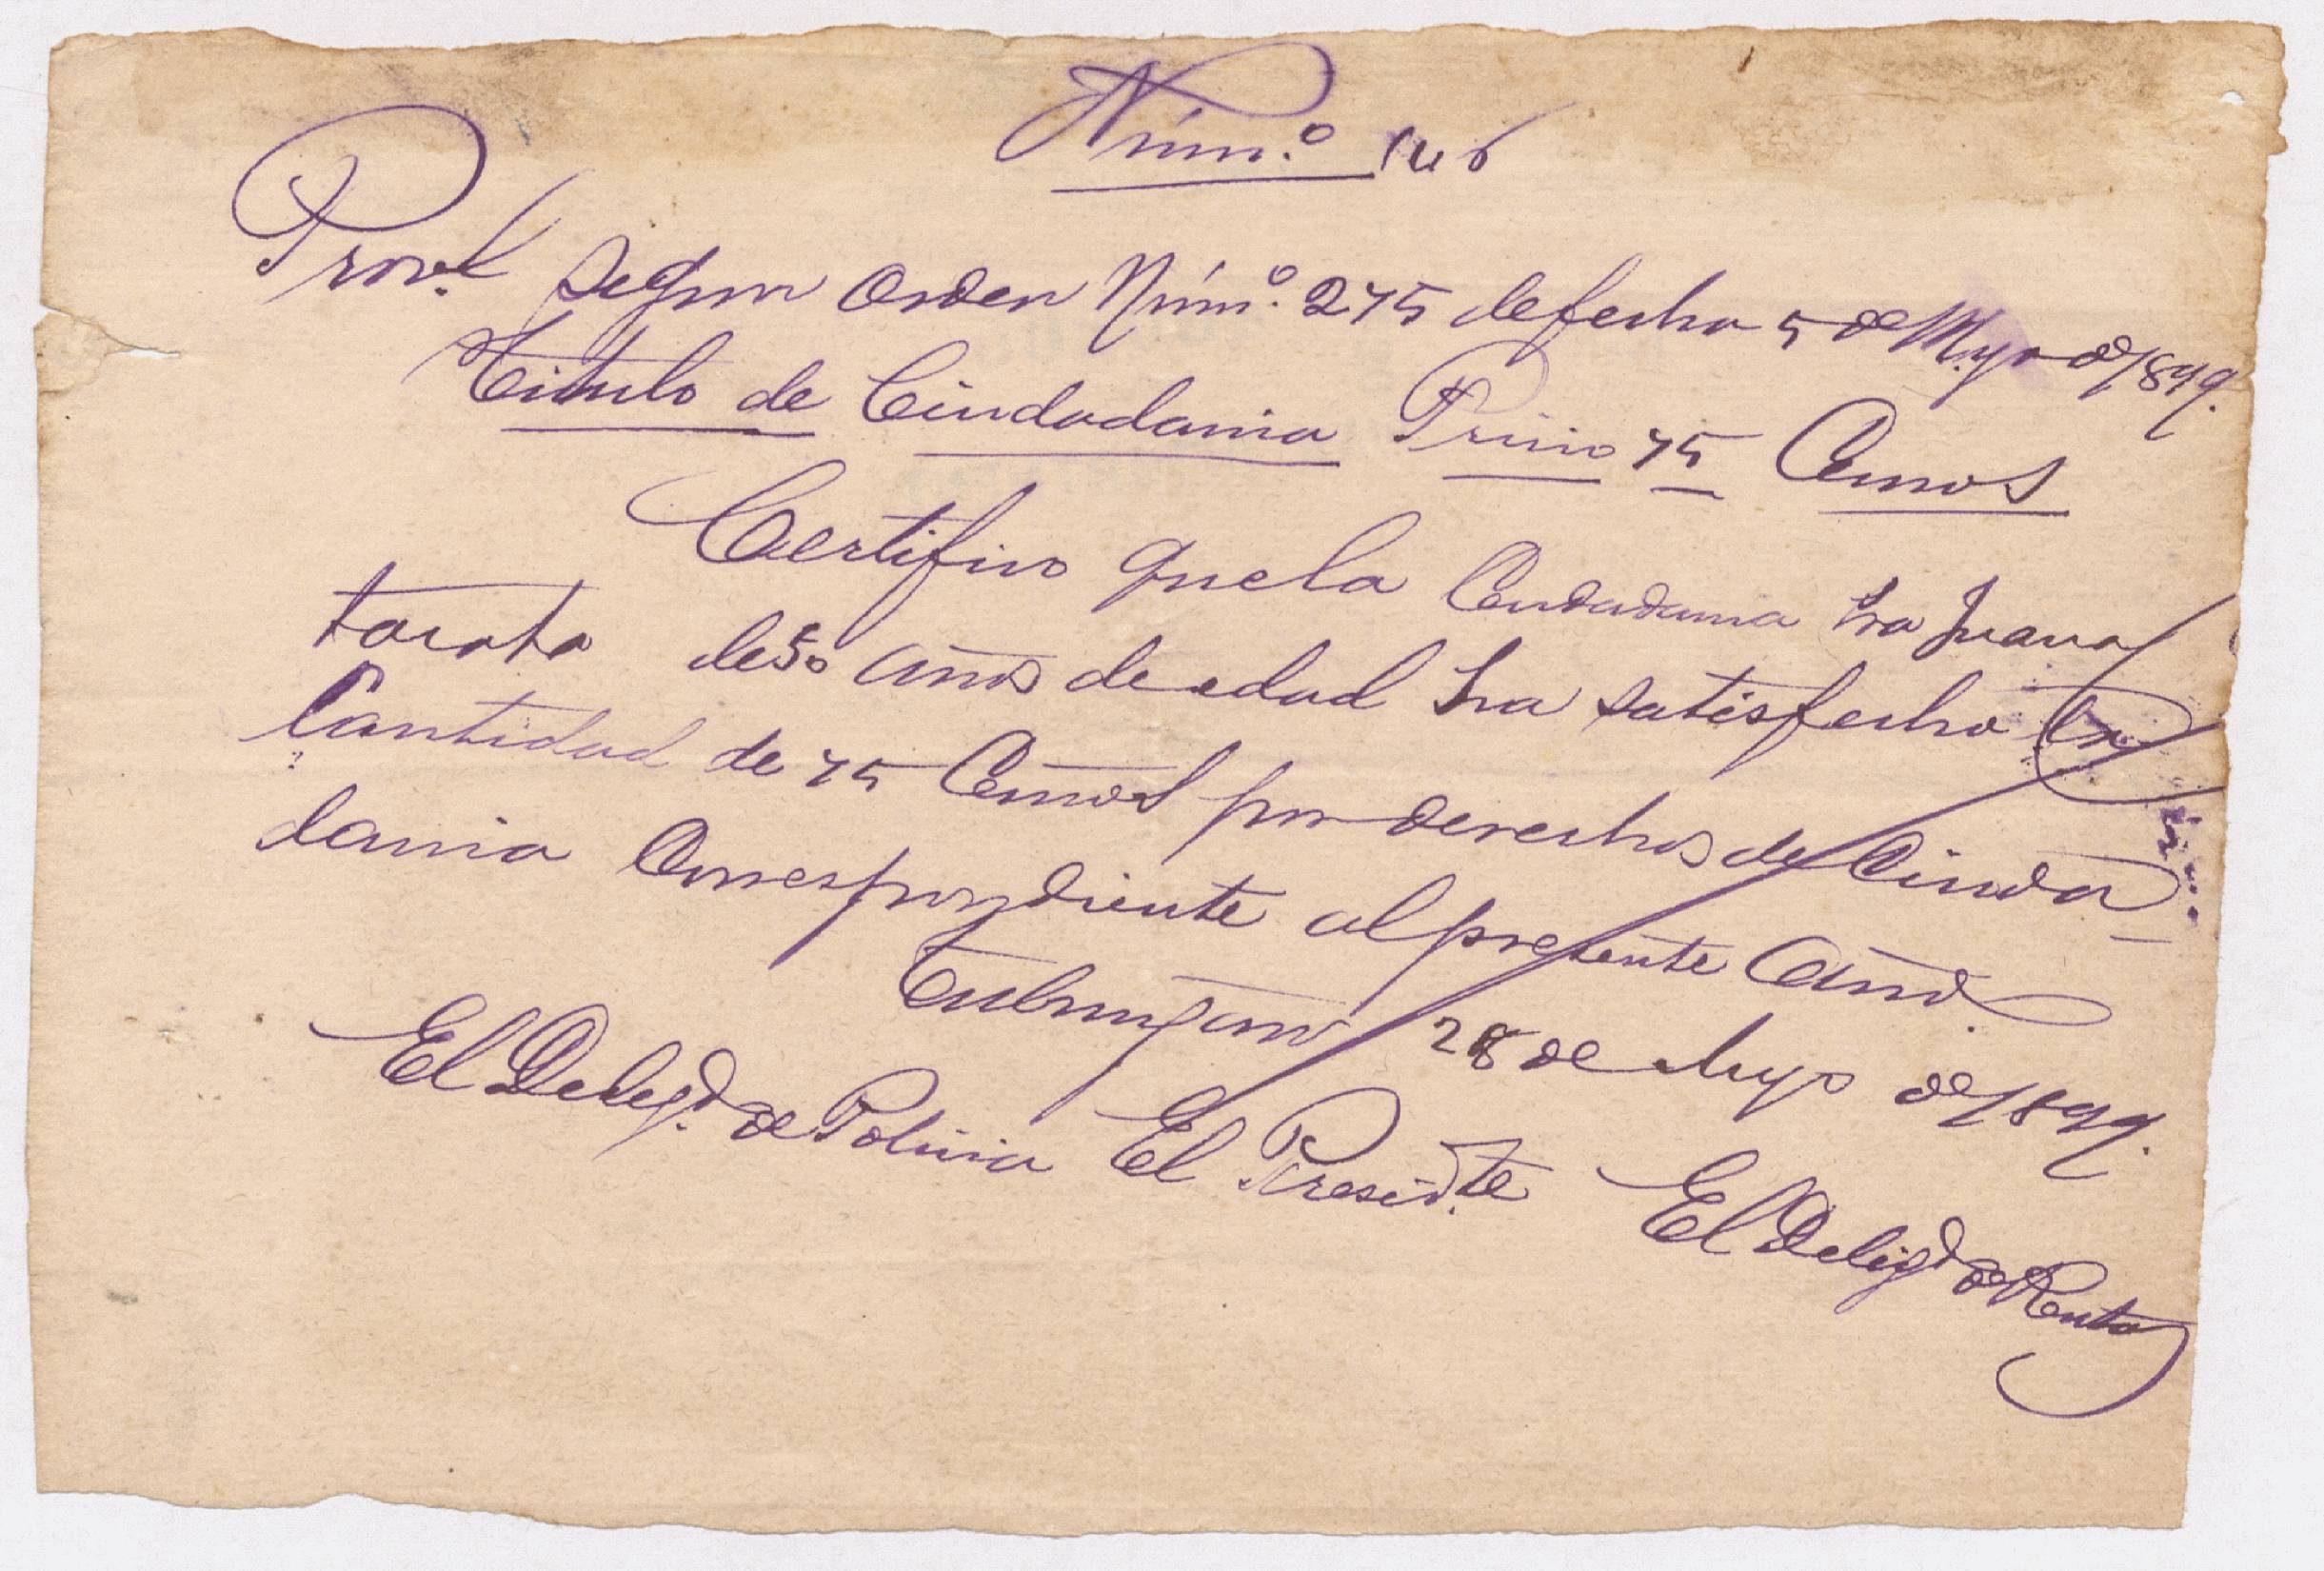 Núm.º 146
Prov.l Segun Orden Núm.º 275 de fecha 5 de Myo de 1899.
Titulo de Ciudadania Precio 75 Cmos
Certifico que la Ciudadana Sra Juana
de 50 años de edad ha satisfecho la
Cantidad de 75 Cmos por derechos de Ciuda-
dania Correspondiente al presente Año.
Tubungan 28 de Mayo de 1899.
El Deleg.do de Policia El Presid.te El Delegdo de Renta